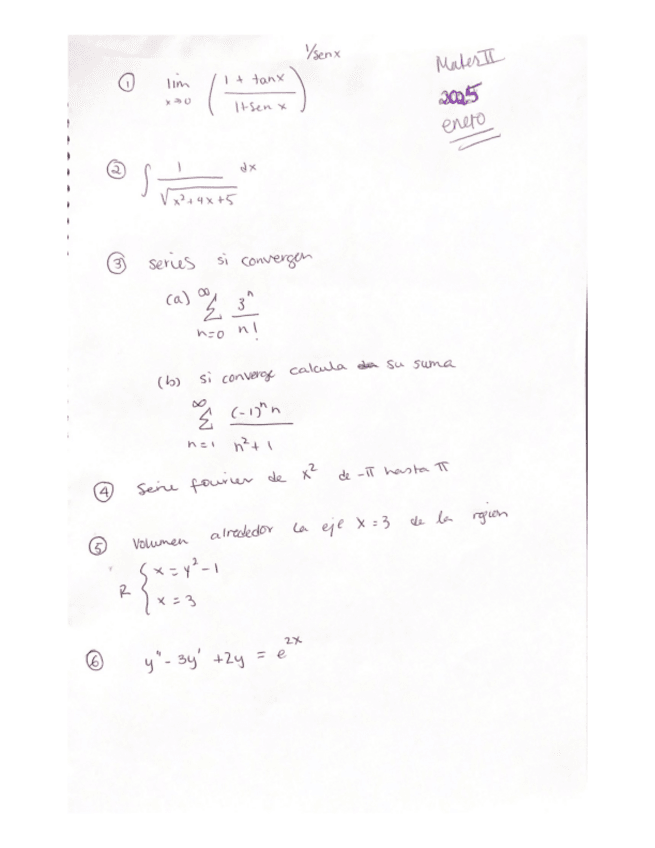 Mates II
2025
enero
① lim x→0 ( (1 + tanx) / (1+sen x) )^(1/senx)
② ∫ 1 / √(x²+4x+5) dx
③ series si convergen
(a) ∞ Σ n=0 3ⁿ / n!
(b) si converge calcula su suma
∞ Σ n=1 (-1)ⁿ n / (n²+1)
④ Serie fourier de x² de -π hasta π
⑤ Volumen alrededor la eje x=3 de la rgion
R { x = y² - 1
x = 3
⑥ y'' - 3y' + 2y = e^(2x)